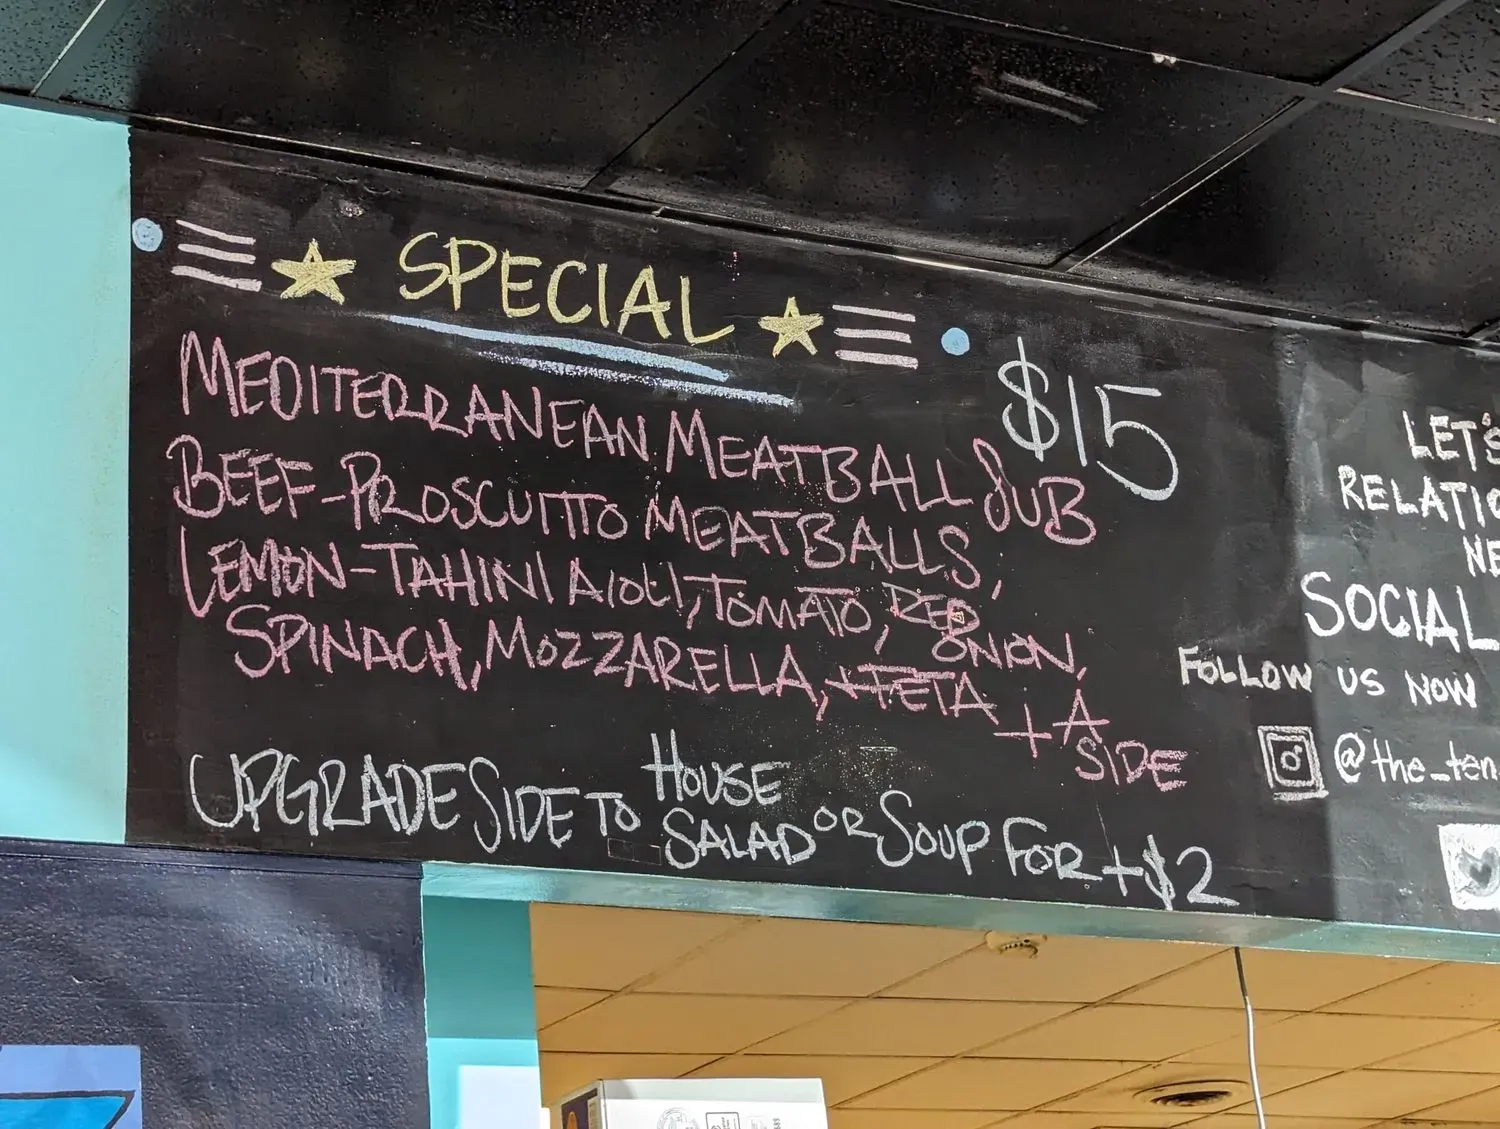 SPECIAL
$15
MEDITERRANEAN MEATBALL SUB
BEEF-PROSCUITTO MEATBALLS,
LEMON-TAHINI AIOLI, TOMATO, RED ONION,
SPINACH, MOZZARELLA, + FETA + A SIDE
UPGRADE SIDE TO HOUSE SALAD OR SOUP FOR +$2
LET'S
RELATIO
NE
SOCIAL
FOLLOW US NOW
@the_ten